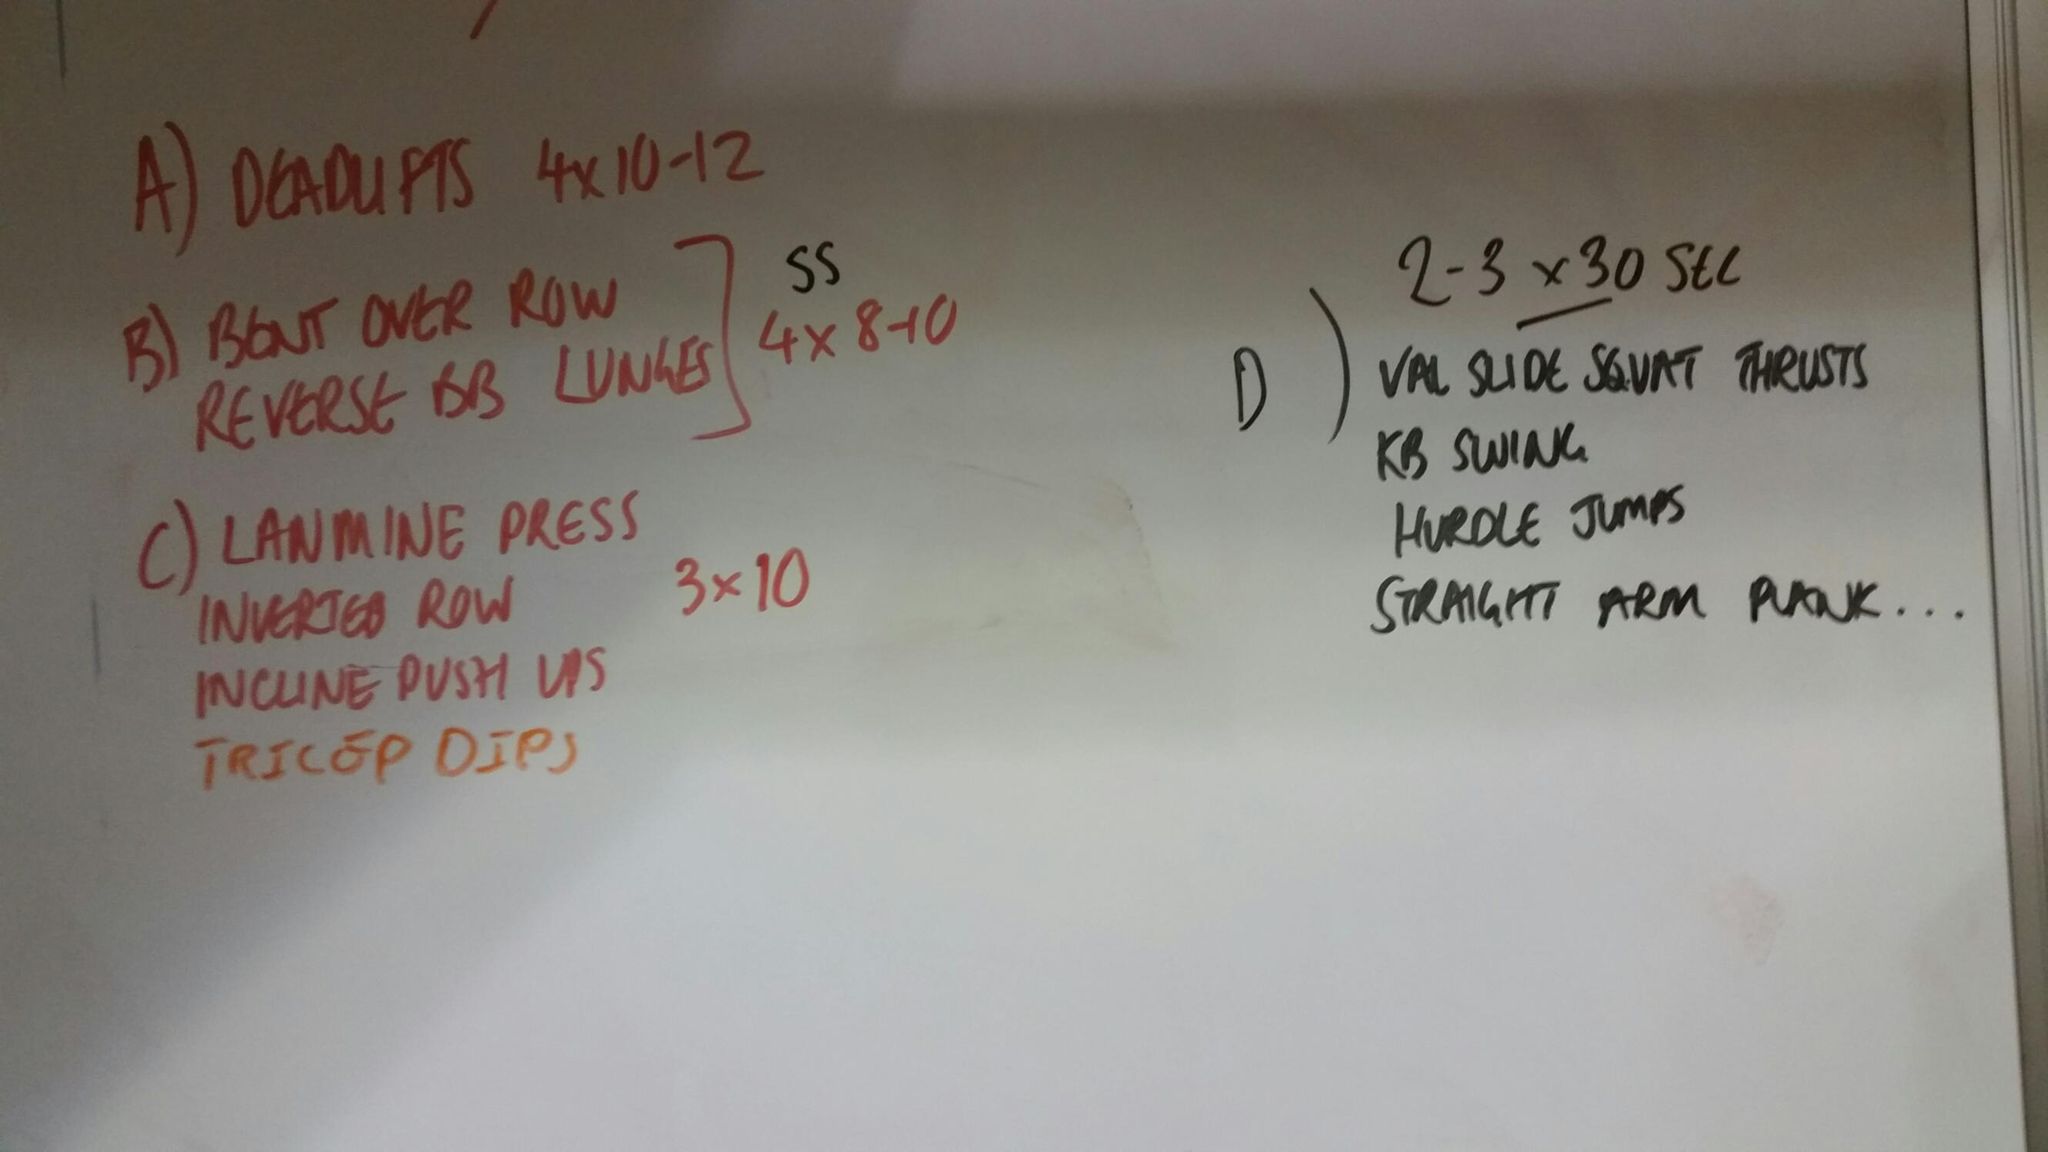 A) DEADLIFTS 4x10-12
B) BENT OVER ROW
REVERSE BB LUNGES
SS
4x 8-10
C) LANMINE PRESS
INVERTED ROW
3x10
INCLINE PUSH UPS
TRICEP DIPS
D)
2-3 x30 SEC
VAL SLIDE SQUAT THRUSTS
KB SWING
HURDLE JUMPS
STRAIGHT ARM PLANK...